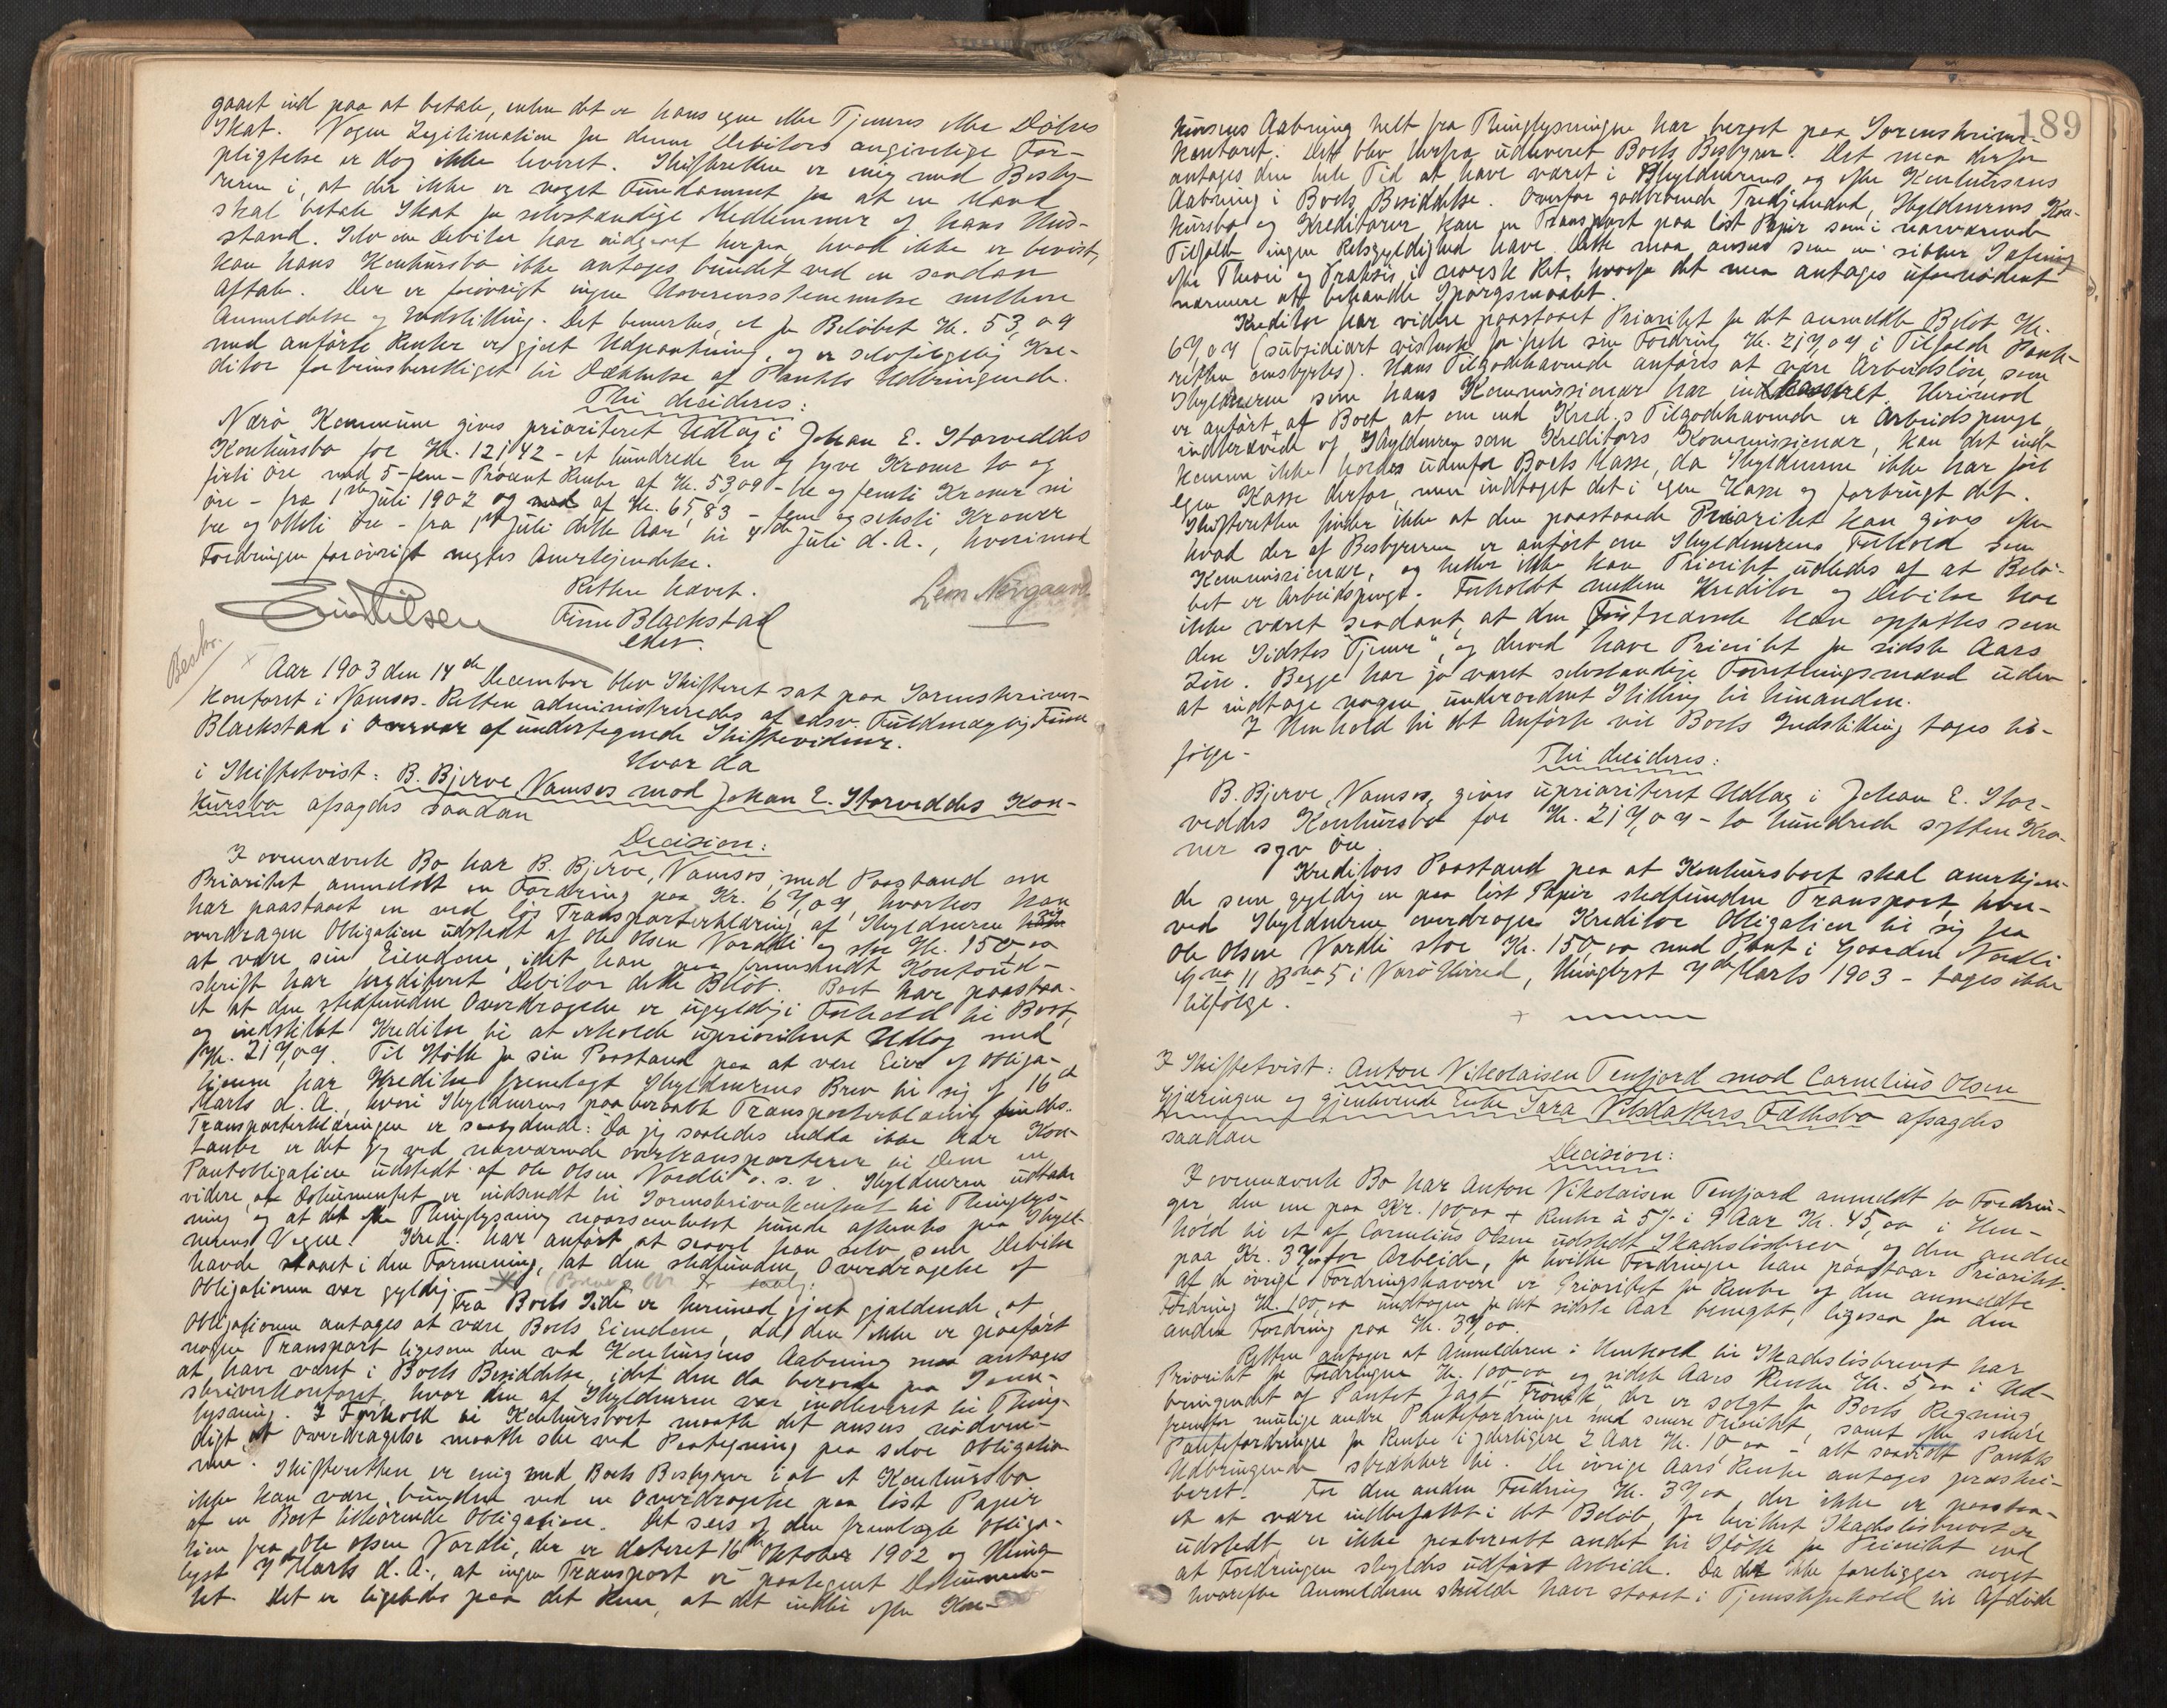 gaaet ind paa at betale, enten det er hans egne eller Tjeneres eller Døtres
Skat. Nogen Legitimation for denne Debitors angivelige For-
pligtelse er dog ikke leveret. Skifteretten er enig med Besty-
reren i, at der ikke er noget Fundament for at en Mand
skal betale Skat for selvstændige Medlemmer af hans Hus-
stand. Selv om Debitor har indgaaet herpaa, hvad ikke er bevist,
kan hans Konkursbo ikke antages bundet ved en saadan
Aftale. Der er forøvrigt ingen Uoverensstemmelse mellem
Anmeldelse og Indstilling. Det bemærkes, at for Beløbet Kr. 53,09
med anførte Renter er gjort Udpantning, og er selvfølgelig Kre-
ditor forlods berettiget til Dækkelse af Pantets Udbringende.
Thi decideres:
Nærø Kommune gives prioriteret Udlæg i Johan E. Storveddes
Konkursbo for Kr. 121,42 - et hundrede en og tyve Kroner to og
førti øre med 5-fem-Procent Rente af Kr. 53,09 - tre og femti Kroner ni
øre - fra 1ste Juli 1902 og af Kr. 65,83 - fem og seksti Kroner
tre og otteti øre - fra 1ste Juli dette Aar til 4de Juli d.A., hvorimod
Fordringen forøvrigt negtes Anerkjendelse.
Retten hævet.
Finn Blackstad
edsv.
Leon Nørgaard
Bestbr.
Aar 1903 den 14de December blev Skifteret sat paa Sorenskriver-
kontoret i Namsos. Retten administreredes af edsv. Fuldmægtig Finn
Blackstad i Overvær af undertegnede Skiftevidner.
Hvor da
i Skiftetvist: B. Bjerve, Namsos mod Johan E. Storveddes Kon-
kursbo afsagdes saadan
Decision:
I ovennævnte Bo har B. Bjerve, Namsos, med Paastand om
Prioritet anmeldt en Fordring paa Kr. 67,04, hvorhos han
har paastaaet en ved løs Transporterklæring af Skyldneren
overdragen Obligation udstedt af Ole Olsen Nordli og stor Kr. 150,00
at være sin Eiendom, idet han paa fremsendt Kontoud-
skrift har krediteret Debitor dette Beløb. Boet har paastaa-
et at den stedfundne Overdragelse er ugyldig i Forhold til Boet,
og indstillet Kreditor til at erholde uprioriteret Udlæg med
Kr. 217,04. Til Støtte for sin Paastand paa at være Eier af Obliga-
tionen har Kreditor fremlagt Skyldnerens Brev til sig af 16de
Marts d.A., hvori Skyldnerens paaberaabte Transporterklæring findes.
Transporterklæringen er saalydende: "Da jeg saaledes endda ikke har Kon-
tanter er det jeg ved nærværende overtransporterer til Dem en
Pantobligation udstedt af Ole Olsen Nordli" o.s.v. Skyldneren udtaler
videre, at Dokumentet er indsendt til Sorenskriverkontoret til Thinglys-
ning og at det efter Thinglysning naarsomhelst kunde afhentes paa Skyld-
nerens Vegne. Kred. har anført at saavel han selv som Debitor
havde staaet i den Formening, at den stedfundne Overdragelse af
Obligationen var gyldig.
Fra Boets Side er herimod gjort gjældende, at
Obligationen antages at være Boets Eiendom, da den ikke er paaført
nogen Transport ligesom den ved Konkursens Aabning maa antages
at have været i Boets Besiddelse, idet den da beroede paa Soren-
skriverkontoret, hvor den af Skyldneren var indleveret til Thing-
lysning. I Forhold til Konkursboet maatte det ansees nødven-
digt at Overdragelse maatte ske ved Paategning paa selve Obligatio-
nen. Skifteretten er enig med Boets Bestyrer i at et Konkursbo
ikke kan være bundet ved en Overdragelse paa løst Papir
af en Boet tilhørende Obligation. Det sees af den fremlagte Obliga-
tion fra Ole Olsen Nordli, der er dateret 16de Oktober 1902 og thing-
lyst 7de Marts d.A., at ingen Transport er paategnet Dokumen-
tet. Det er ligeledes paa det Rene, at det indtil efter Kon-
189
kursens Aabning helt fra Thinglysningen har beroet paa Sorenskriver-
kontoret. Det blev herfra udleveret Boets Bestyrer. Det maa derfor
antages den hele Tid at have været i Skyldnerens og efter Konkursens
Aabning i Boets Besiddelse. Overfor godtroende Tredjemand, Skyldnerens Kon-
kursbo og Kreditorer, kan en Transport paa løst Papir som i nærværende
Tilfælde ingen Retsgyldighed have. Dette maa ansees som en sikker Sætning
efter Theori og Praksis i norsk Ret, hvorfor det maa antages ufornødent
nærmere at behandle Spørgsmaalet.
Kreditor har videre paastaaet Prioritet for det anmeldte Beløb Kr.
67,04 (subsidiært vistnok for hele sin Fordring Kr. 217,04 i Tilfælde Pant-
retten omstyrtes). Hans Tilgodehavende anføres at være Arbeidsløn, som
Skyldneren som hans Kommissionær har indkasseret. Herimod
er anført af Boet at om end Kred.s Tilgodehavende er Arbeidspenge
inddrevne af Skyldneren som Kreditors Kommissionær, kan det ind-
komne ikke holdes udenfor Boets Masse, da Skyldneren ikke har ført
egen Kasse derfor, men indtaget det i egen Kasse og forbrugt det.
Skifteretten finder ikke at den paastaaede Prioritet kan gives efter
hvad der af Bestyreren er anført om Skyldnerens Forhold som
Kommissionær, og heller ikke kan Prioritet udledes af at Belø-
bet er Arbeidspenge. Forholdet mellem Kreditor og Debitor har
ikke været saadant, at den Førstnævnte kan opfattes som
den Sidstes "Tjener", og derved have Prioritet for sidste Aars
Løn. Begge har jo været selvstændige Forretningsmænd uden
at indtage nogen underordnet Stilling til hinanden.
I Henhold til det Anførte vil Boets Indstilling tages til-
følge -
Thi decideres:
B. Bjerve, Namsos, gives uprioriteret Udlæg i Johan E. Stor-
veddes Konkursbo for Kr. 217,04 - to hundrede sytten Kro-
ner syv øre.
Kreditors Paastand paa at Konkursboet skal anerkjen-
de som gyldig en paa løst Papir stedfunden Transport, hvor-
ved Skyldneren overdrager Kreditor Obligation til sig fra
Ole Olsen Nordli stor Kr. 150,00 med Pant i Gaarden Nordli
Gno 11 Bno 5 i Nærø Herred, thinglyst 7de Marts 1903 - tages ikke
tilfølge.
I Skiftetvist: Anton Nikolaisen Tenfjord mod Cornelius Olsen
Gjæringen og gjenlevende Enke Sara Pilsdatters Fællesbo afsagdes
saadan
Decision:
I ovennævnte Bo har Anton Nikolaisen Tenfjord anmeldt to Fordrin-
ger, den ene paa Kr. 100,00 + Renter à 5% i 9 Aar Kr. 45,00 i Hen-
hold til et af Cornelius Olsen udstedt Skadesløsbrev, og den anden
paa Kr. 37,00 for Arbeide, for hvilke Fordringer han paastaar Prioritet.
Af de øvrige Fordringshavere er Prioritet for Rente af den anmeldte
Fordring Kr. 100,00 undtagen for det sidste Aar benegtet, ligesaa for den
anden Fordring paa Kr. 37,00.
Retten antager at Anmelderen i Henhold til Skadesløsbrevet har
Prioritet for Fordringen Kr. 100,00 og sidste Aars Rente Kr. 5,00 i Ud-
bringendet af Pantet, Jagt "Fronik", der er solgt for Boets Regning,
fremfor mulige andre Pantefordringer med senere Prioritet, samt efter senere
Pantefordringer for Rente i yderligere 2 Aar Kr. 10,00 - alt saavidt Pantets
Udbringende strækker til. De øvrige Aars Rente antages præskri-
beret. For den anden Fordring Kr. 37,00 der ikke er paastaa-
et at være indbefattet i det Beløb, for hvilket Skadesløsbrevet er
udstedt, er ikke paaberaabt andet til Støtte for Prioritet end
at Fordringen skyldes udført Arbeide. Da det ikke foreligger noget
hvorefter Anmelderen skulde have staaet i Tjenesteforhold til Afdøde